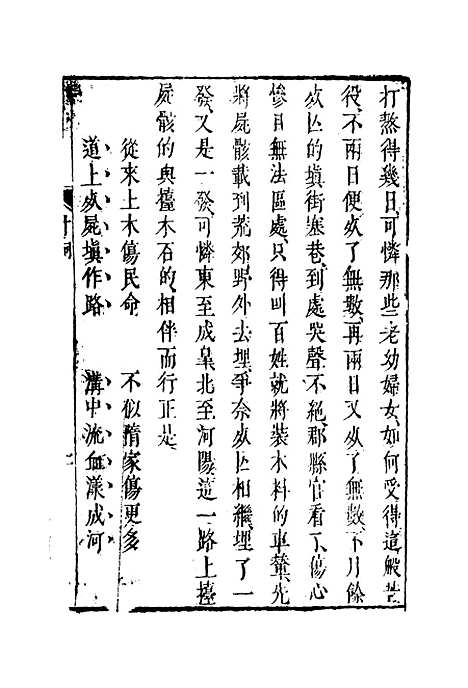 打熬得幾日可憐那些老幼婦女如何受得這般苦
役不兩日便死了無數再兩日又死了無數不月餘
死亾的填街塞巷到處哭聲不絕郡縣官看了傷心
慘目無法區處只得叫百姓就將裝木料的車輦先
將屍骸載到荒郊野外去埋爭奈死亾相繼埋了一
發又是一發可憐東至成皐北至河陽這一路上擡
屍骸的與擡木石的相伴而行正是
從來土木傷民命 不似隋家傷更多
道上死屍填作路 溝中流血漾成河